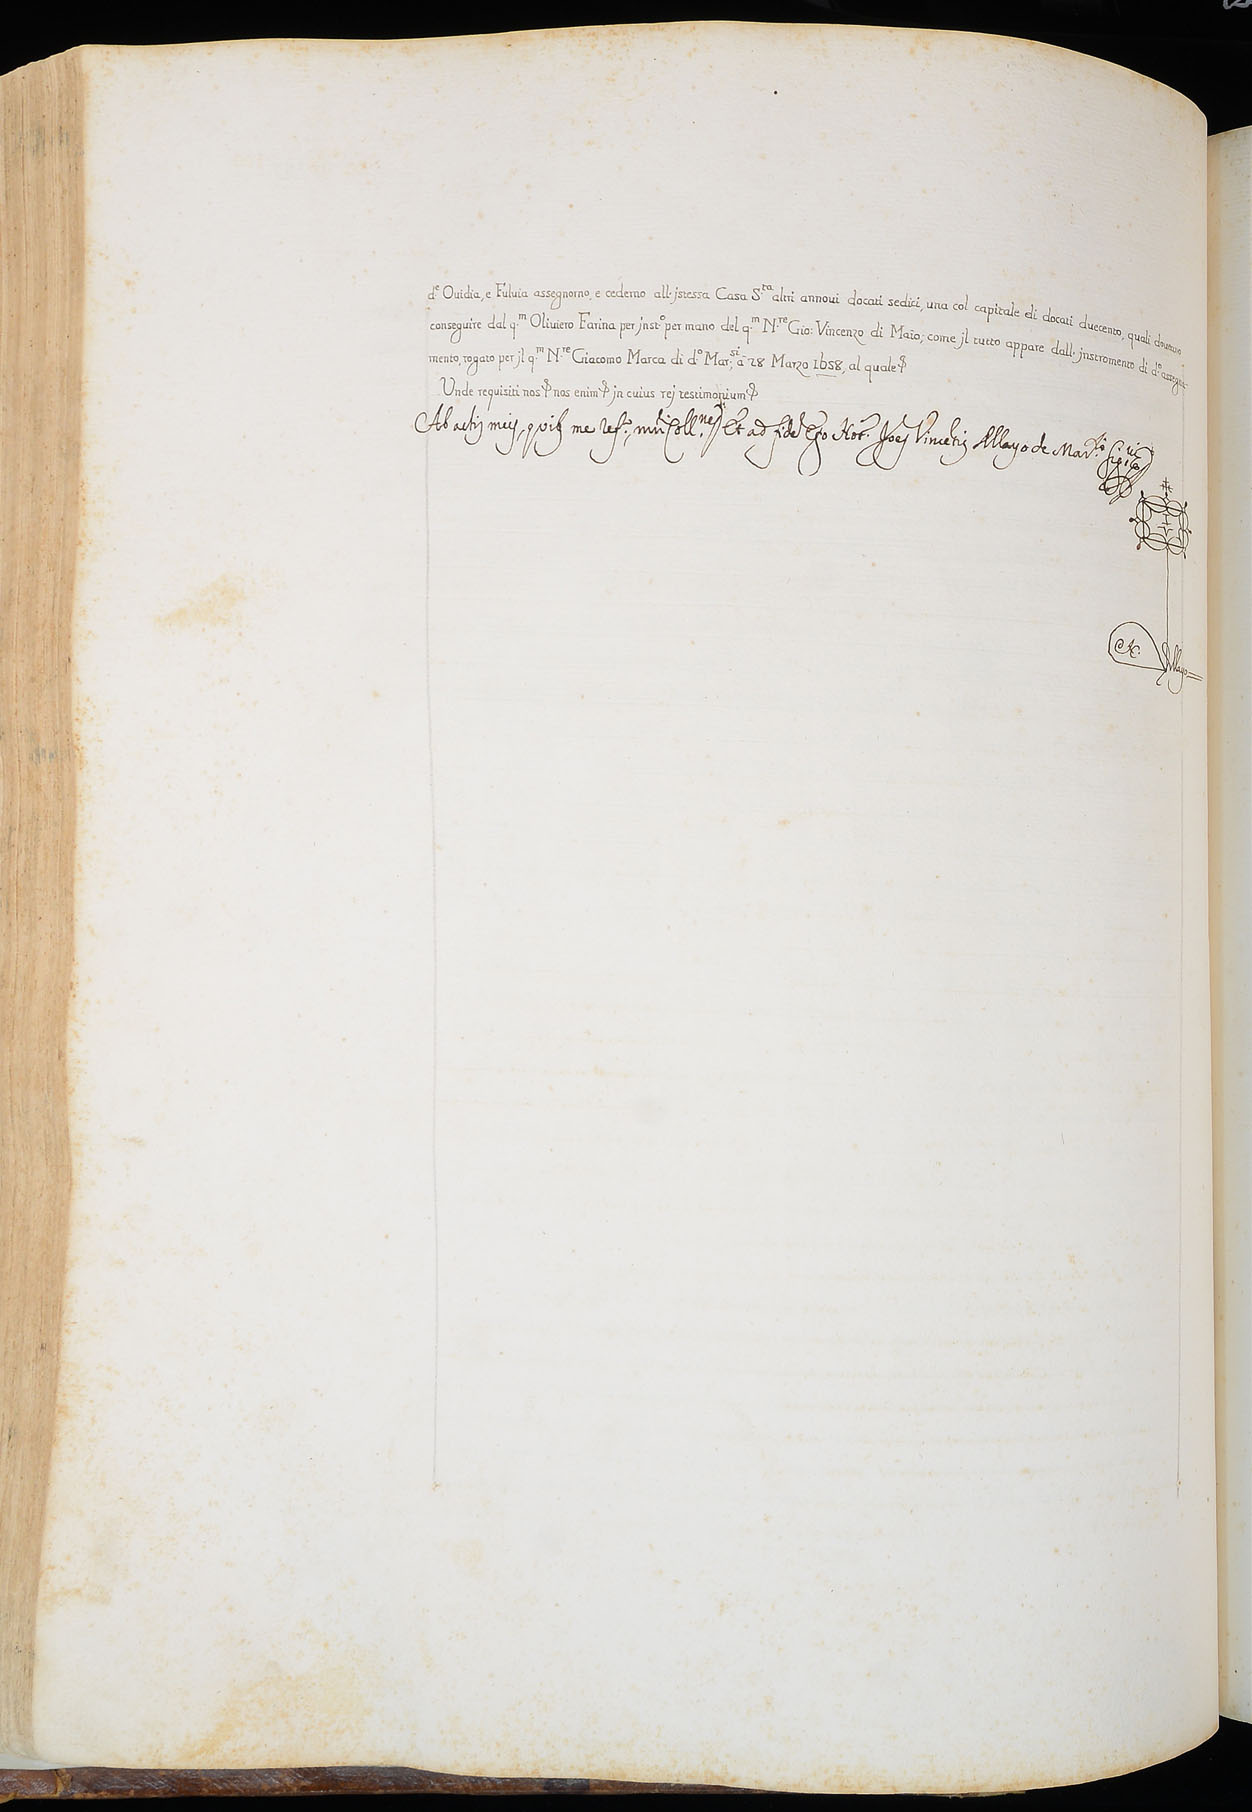 d.ᵉ Ouidia, e Fuluia assegnorno, e cederno all' jstessa Casa S.ᵗᵃ altri annoui docati sedici, una col capitale di docati duecento, quali doueano
conseguire dal q.ᵐ Oliuiero Farina per jnst.ᵒ per mano del q.ᵐ N.ʳᵉ Gio: Vincenzo di Maio; come jl tutto appare dall' jnstromento di d.ᵒ assegna-
mento, rogato per jl q.ᵐ N.ʳᵉ Giacomo Marca di d.ᵒ Mar.ˢⁱ, à 28 Marzo 1658, al quale
Unde requisiti nos nos enim jn cuius rej testimonium
Ab actis meis, me Coll.ⁿᵉ Et ad fidē Ego Not.ʳ Joēs Vincētiꝰ Allayo de
Allayo